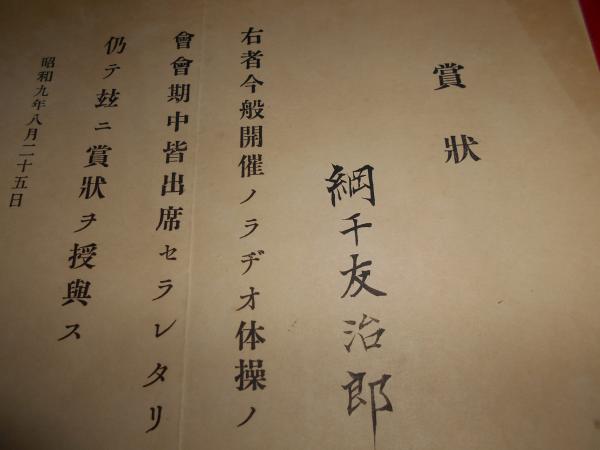 賞狀
綱千友治郎
右者今般開催ノラヂオ体操ノ
會會期中皆出席セラレタリ
仍テ玆ニ賞狀ヲ授與ス
昭和九年八月二十五日